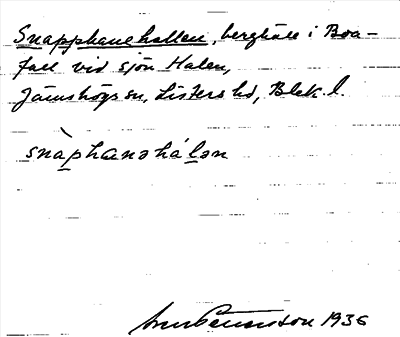 Snapphanehallen, berghäll i Boa-
fall vid sjön Halen,
Jämshögs sn, Listers hd, Blek. l.
snàphanəháḷən
1936